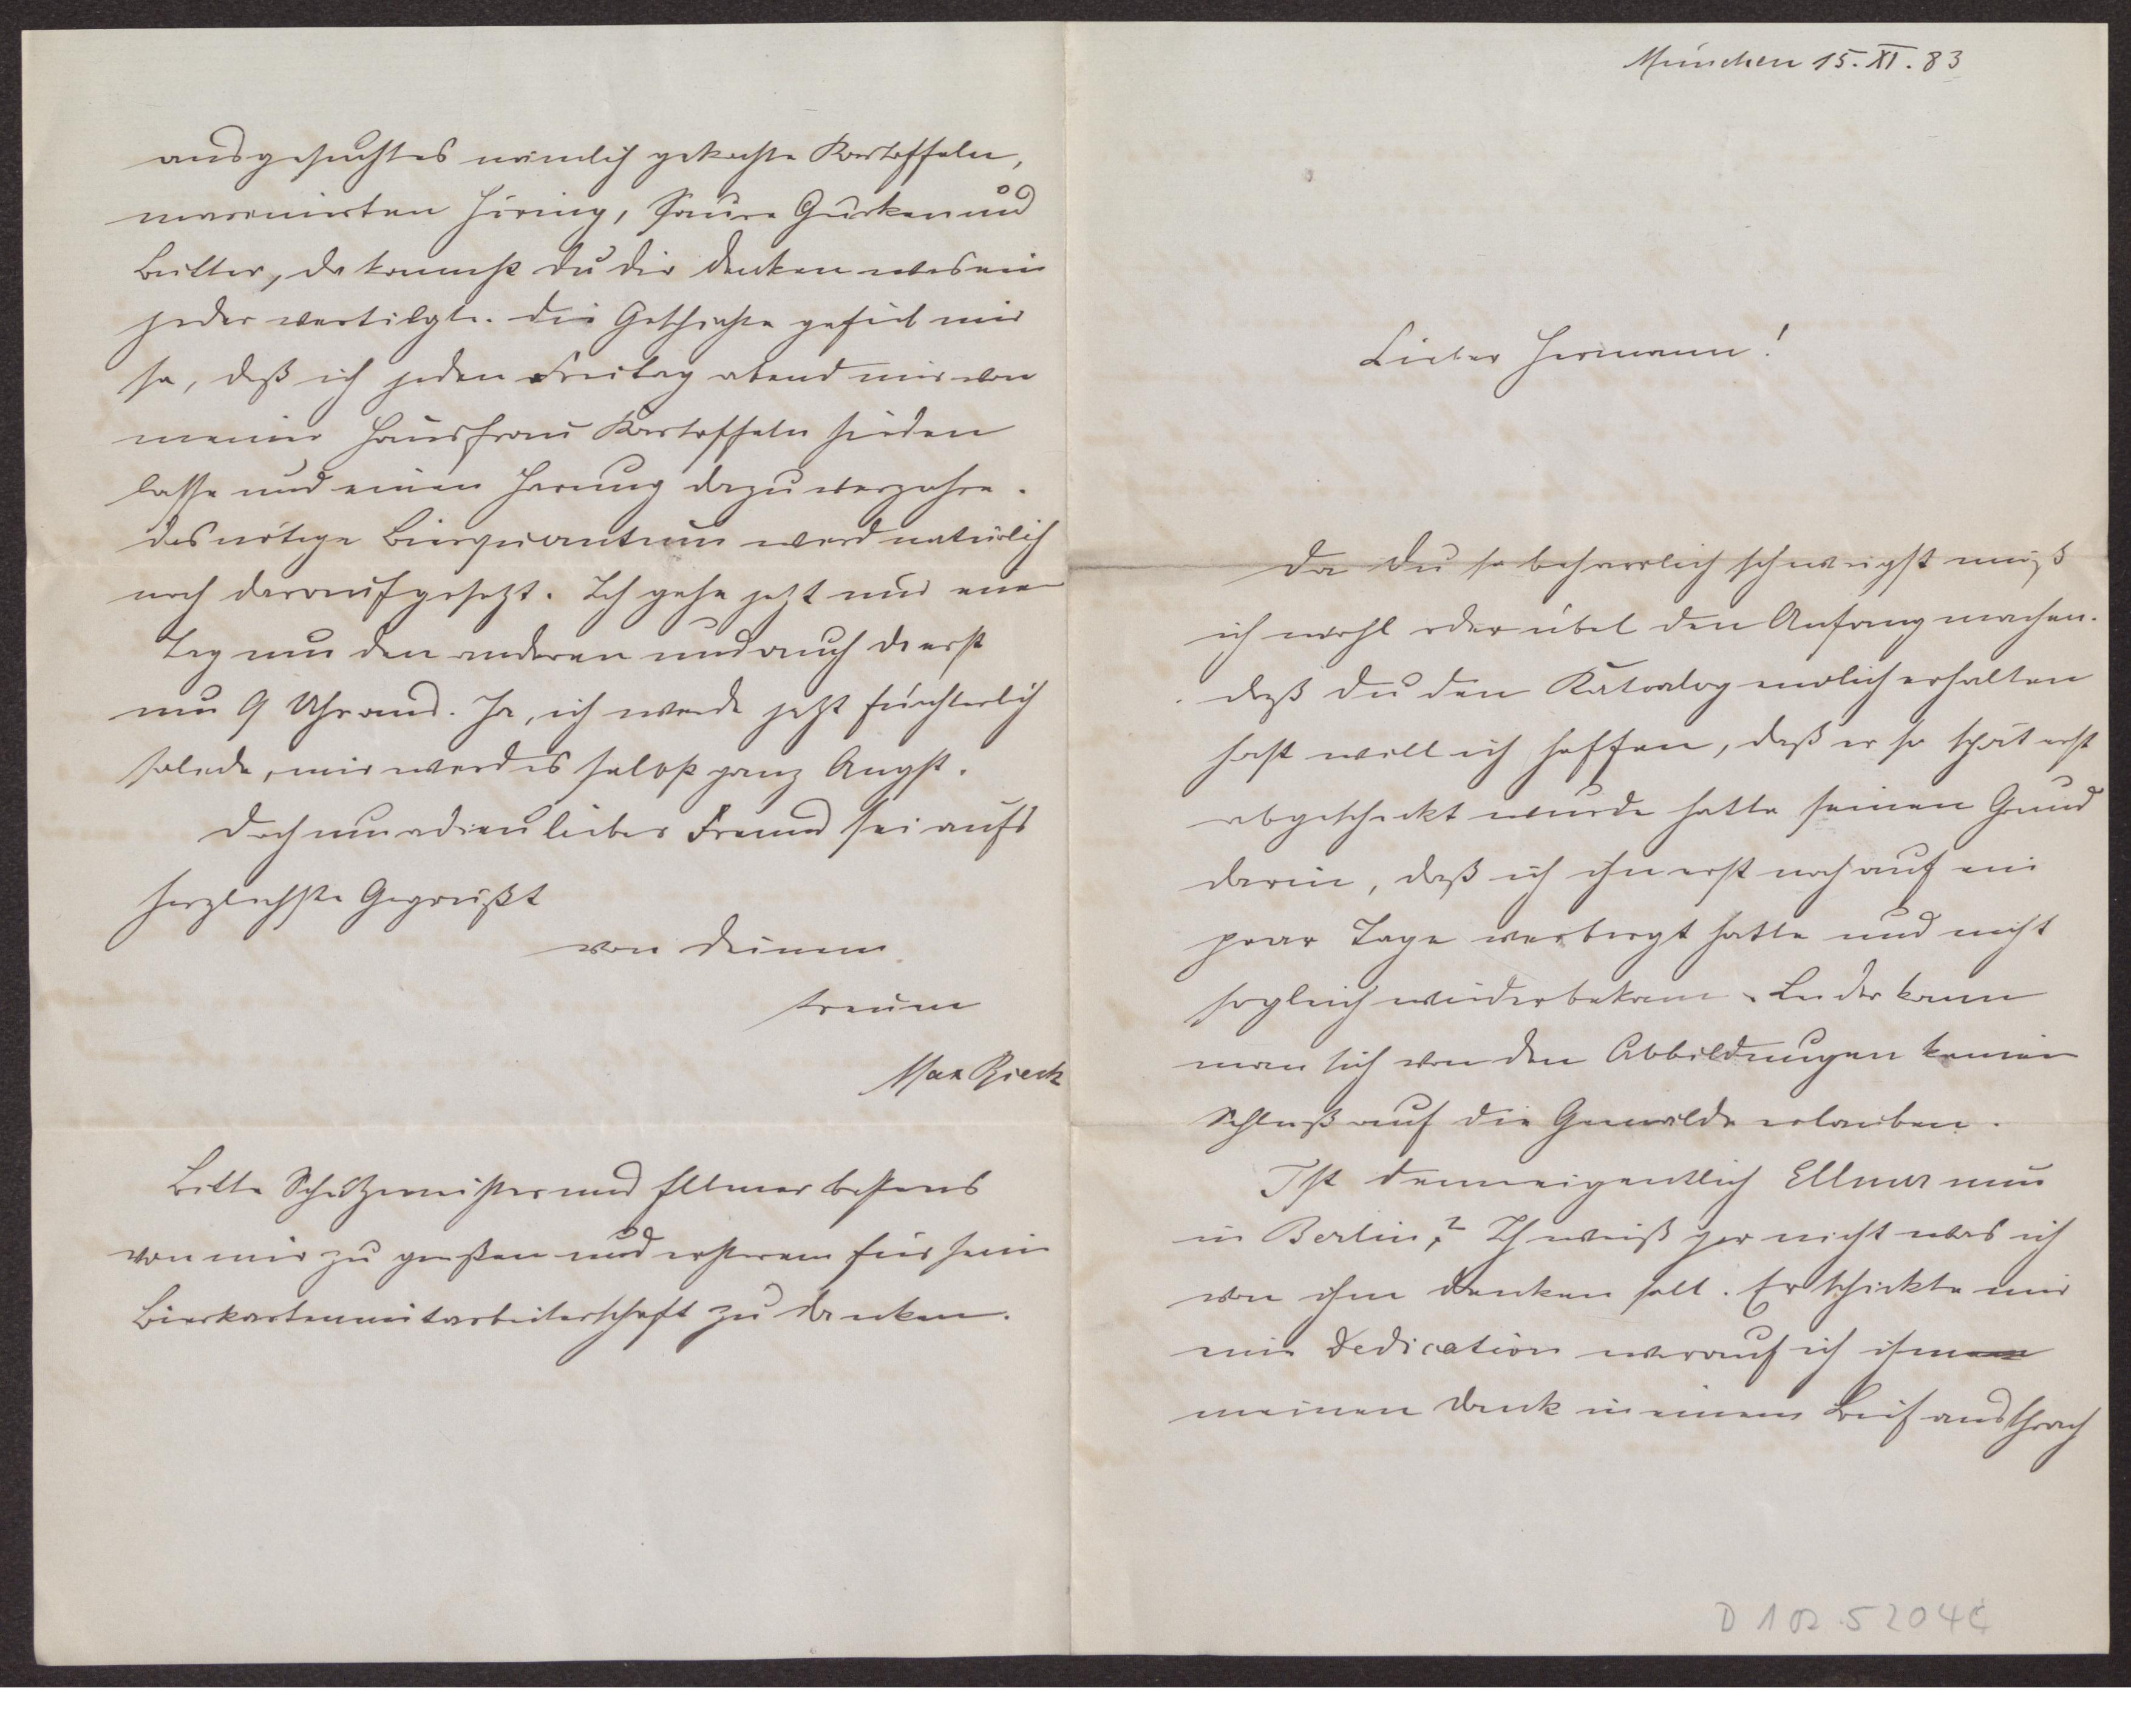 München 15. XI. 83
Lieber Hermann!
Da Du so beharrlich schweigst muß
ich wohl oder übel den Anfang machen.
daß Du den Katalog endlich erhalten
hast will ich hoffen, daß er so spät erst
abgeschickt wurde hatte seinen Grund
darin, daß ich ihn erst noch auf ein
paar Tage verborgt hatte und nicht
sogleich wiederbekam. Leider kann
man sich von den Abbildungen keinen
Schluß auf die Gemälde erlauben.
Ist denn eigentlich Ellmer nun
in Berlin? Ich weiß gar nicht was ich
von ihm denken soll. Er schickte mir
eine Dedication worauf ich ihm
meinen Dank in einem Brief aussprach
ausgesuchtes nämlich gekochte Kartoffeln,
marinirten Häring, Saure Gurken und
Butter, da kannst Du dir denken was ein
jeder vertilgte. Die Geschichte gefiel mir
so, daß ich jeden Freitag abend mir von
meiner Hausfrau Kartoffeln sieden
lasse und einen Harung dazu verzehre.
das nötige Bierquantum wird natürlich
noch daraufgesetzt. Ich gehe jetzt nur einen
Tag um den anderen und auch da erst
um 9 Uhr aus. Ja, ich werde jetzt fürchterlich
solide, mir wird es selbst ganz Angst.
Doch nun adieu lieber Freund sei aufs
herzlichste Gegrüßt
von Deinem
treuen
Max Rieck
Bitte Schützmeister und Ellmer bestens
von mir zu grüßen und ersterem für seine
Bierkartenmitarbeiterschaft zu danken.
D 102.5204